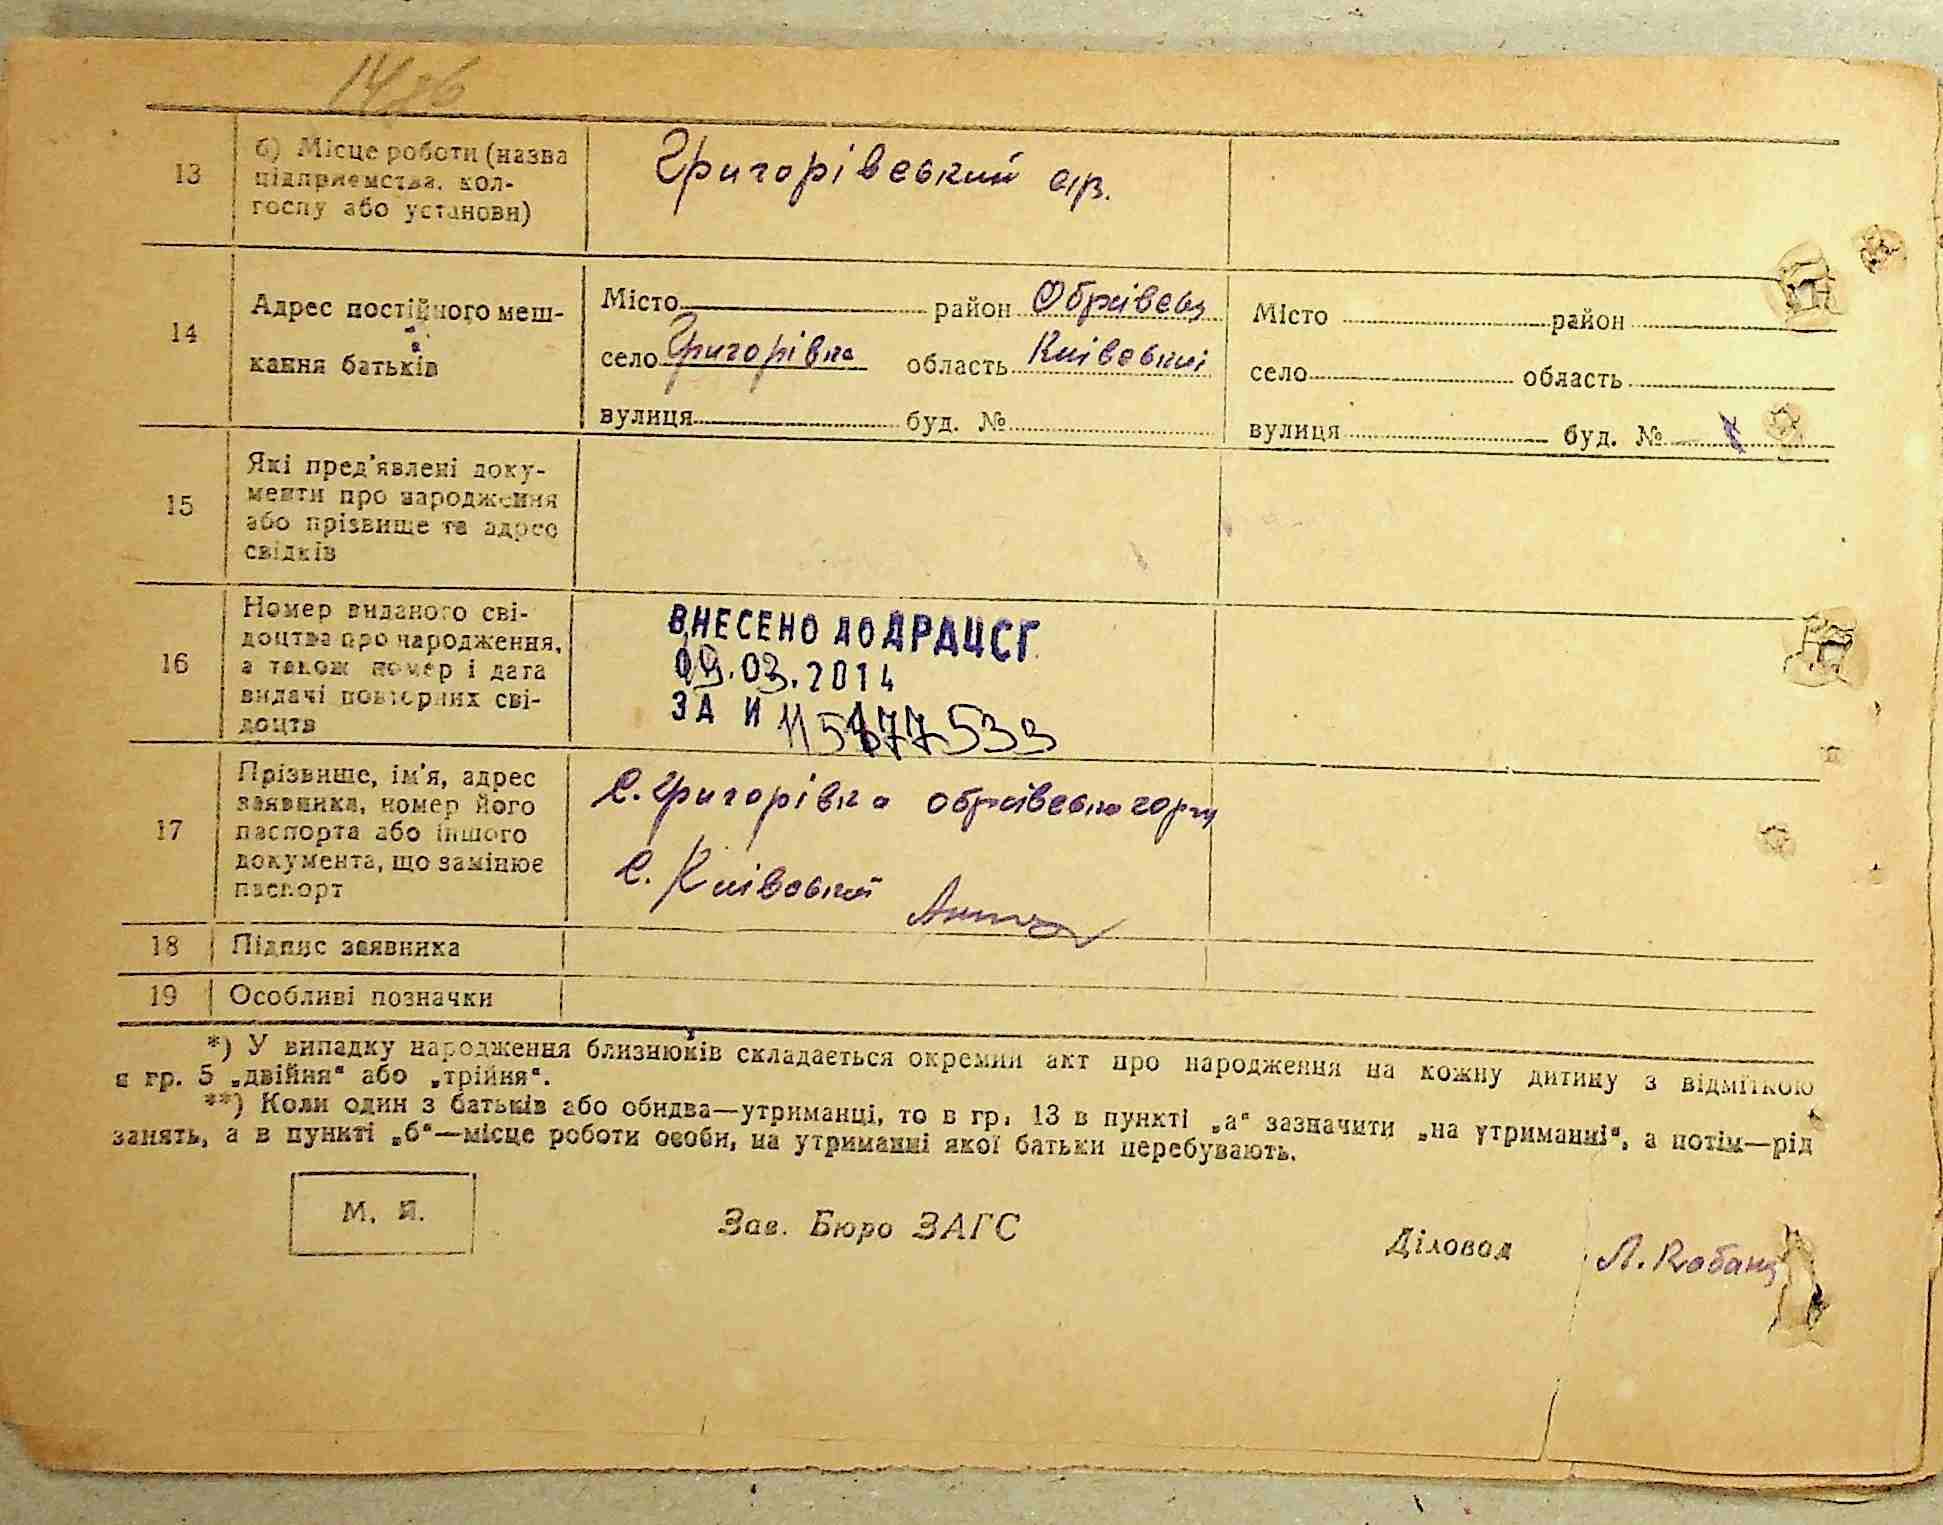 13
б) Місце роботи (назва
підприємства, кол-
госпу або установи)
Григорівський
14
Адрес постійного меш-
кання батьків
Місто район Обухівськ
село Григорівка область Київський
вулиця буд. №
Місто район
село область
вулиця буд. №
15
Які пред'явлені доку-
менти про народження
або прізвище та адрес
свідків
16
Номер виданого сві-
доцтва про народження,
а також номер і дата
видачі повторних сві-
доцтв
ВНЕСЕНО ДО ДРАЦСГ
09.03.2014
ЗА И 115477533
17
Прізвище, ім'я, адрес
заявника, номер його
паспорта або іншого
документа, що замінює
паспорт
с. Григорівка
с. Київський
18 Підпис заявника
19 Особливі позначки
*) У випадку народження близнюків складається окремий акт про народження на кожну дитину з відміткою
в гр. 5 „двійня" або „трійня".
**) Коли один з батьків або обидва—утриманці, то в гр. 13 в пункті „а" зазначити „на утриманні", а потім—рід
занять, а в пункті „б"—місце роботи особи, на утриманні якої батьки перебувають.
М. П.
Зав. Бюро ЗАГС
Діловод